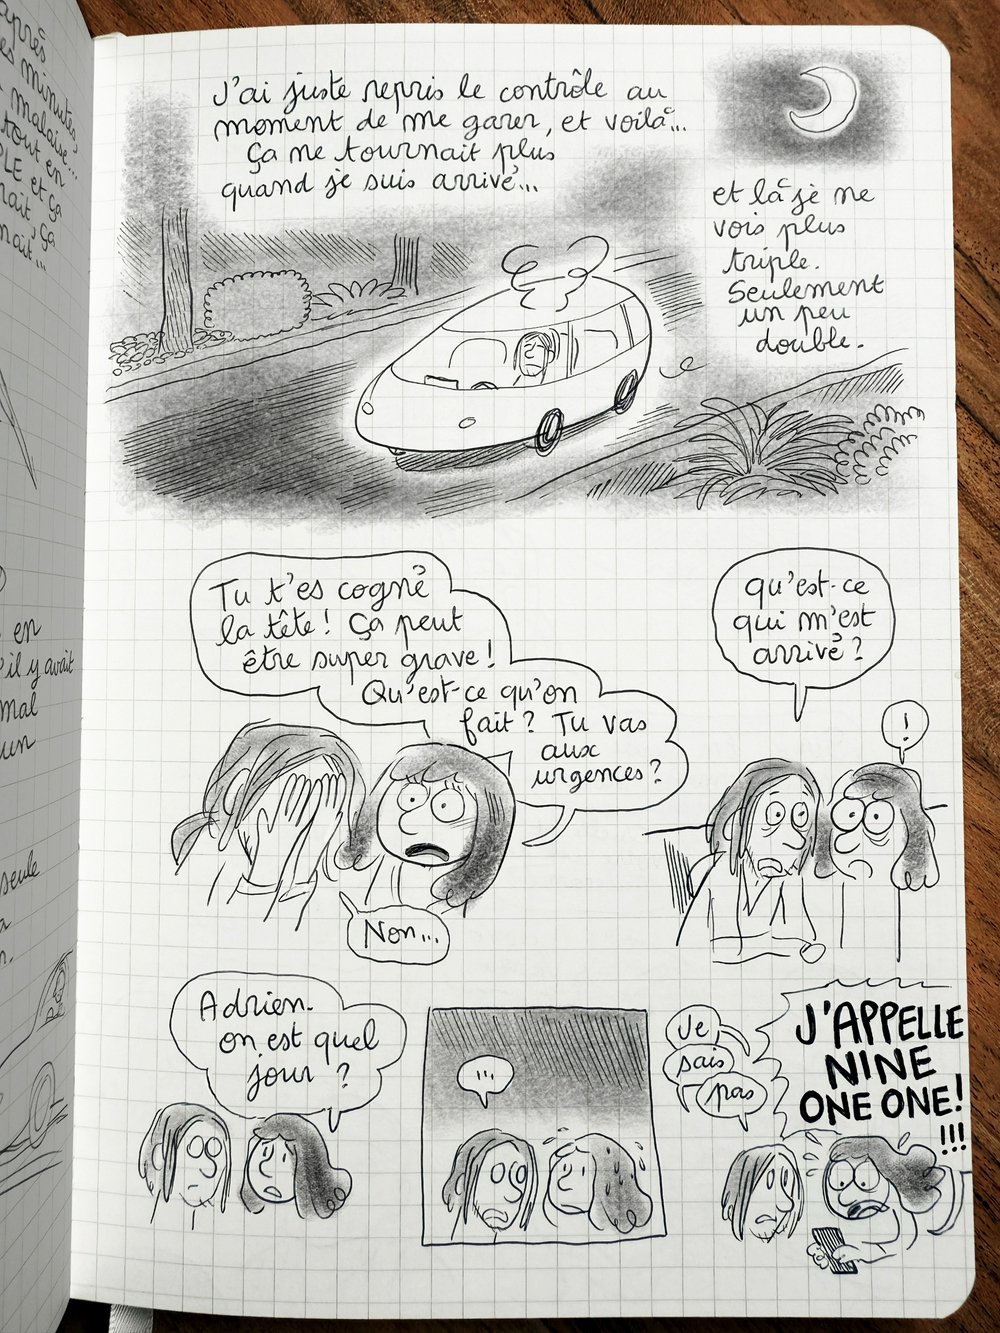 après
minutes,
malaise...
tout en
et ça
ça
en
il y avait
mal
un
seule
J'ai juste repris le contrôle au
moment de me garer, et voilà...
Ça ne tournait plus
quand je suis arrivé...
et là je ne
vois plus
triple.
Seulement
un peu
double.
Tu t'es cogné
la tête! Ça peut
être super grave!
Qu'est-ce qu'on
fait? Tu vas
aux
urgences?
Non...
qu'est-ce
qui m'est
arrivé?
!
Adrien.
on est quel
jour ?
...
Je
sais
pas
J'APPELLE
NINE
ONE ONE!
!!!